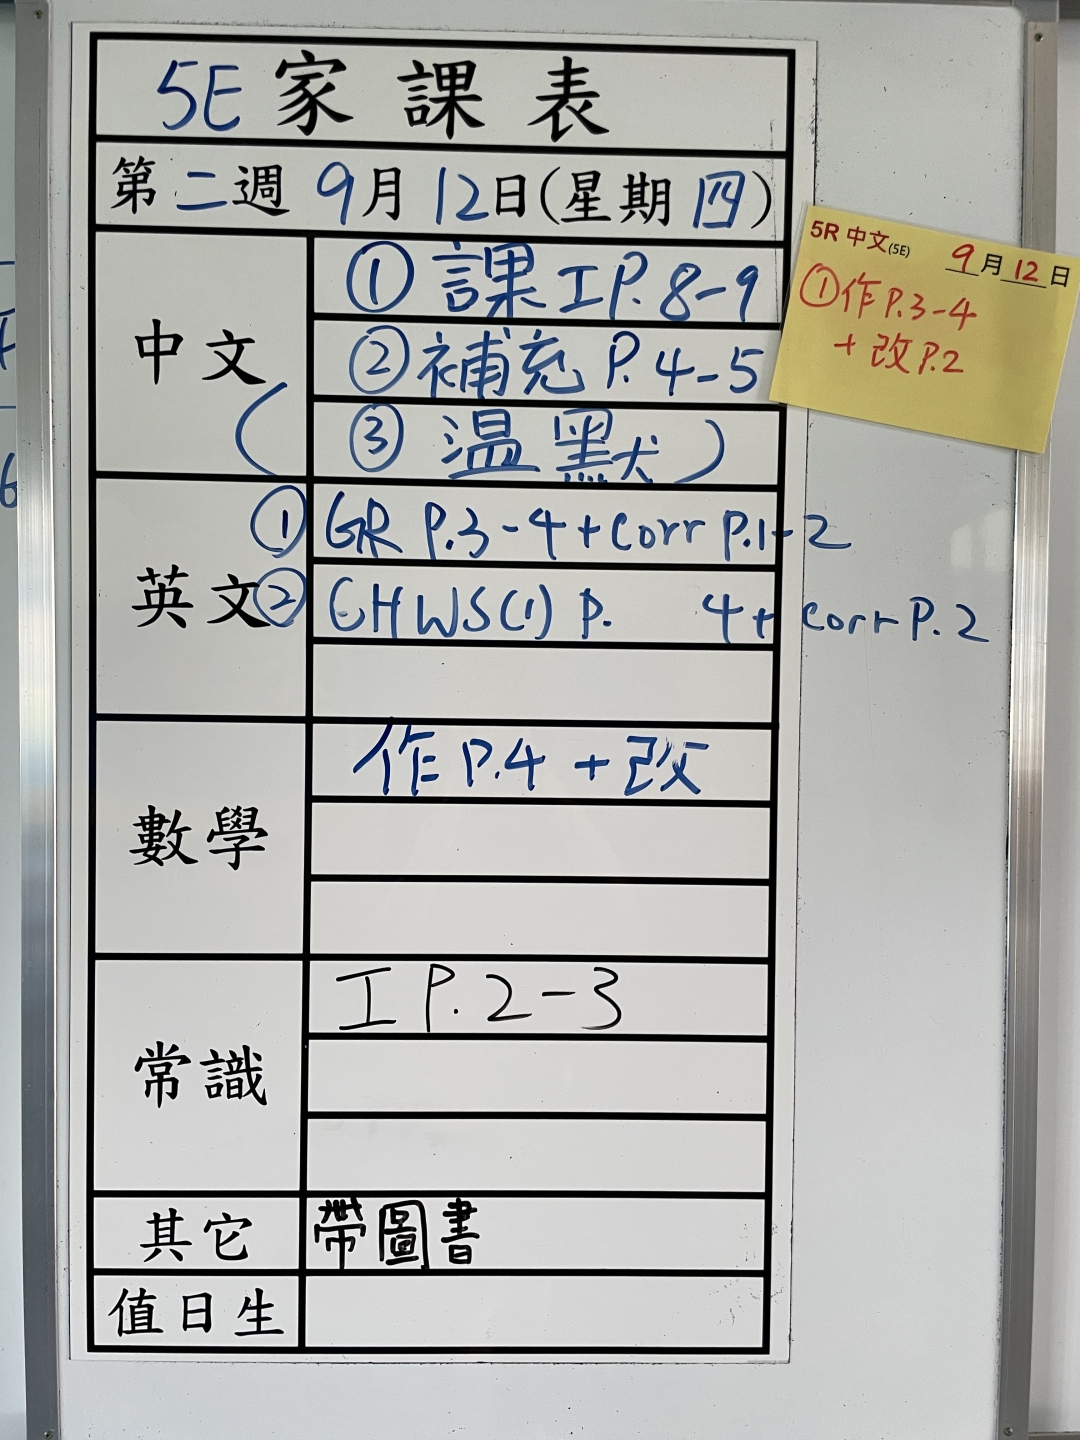 5E 家課表
第二週 9月12日(星期四)
中文
① 課工P.8-9
② 補充 P.4-5
(③ 溫默)
英文
① GR P.3-4+corr P.1-2
② CHWS(1) P. 4+corr P.2
數學
作P.4 + 改
常識
工 P.2-3
其它
帶圖書
值日生
5R 中文(5E) 9月12日
①作P.3-4
+ 改P.2